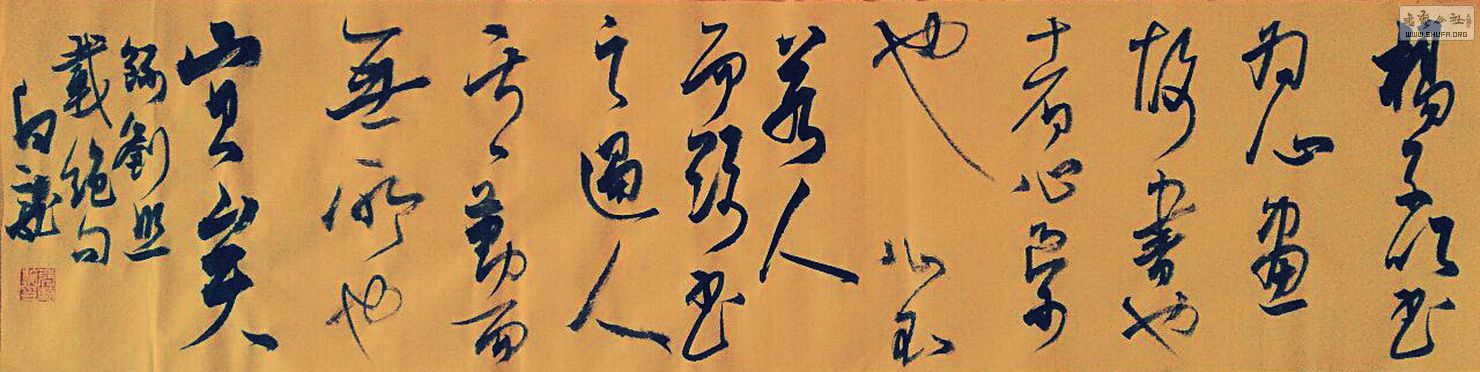 書藝公社
WWW.SHUFA.ORG
楊子以书
为心畫
故書也
者心學
也心不
若人
而欲书
之過人
其勤而
無所也
宜矣
錄劉熙
載絕句
白龍